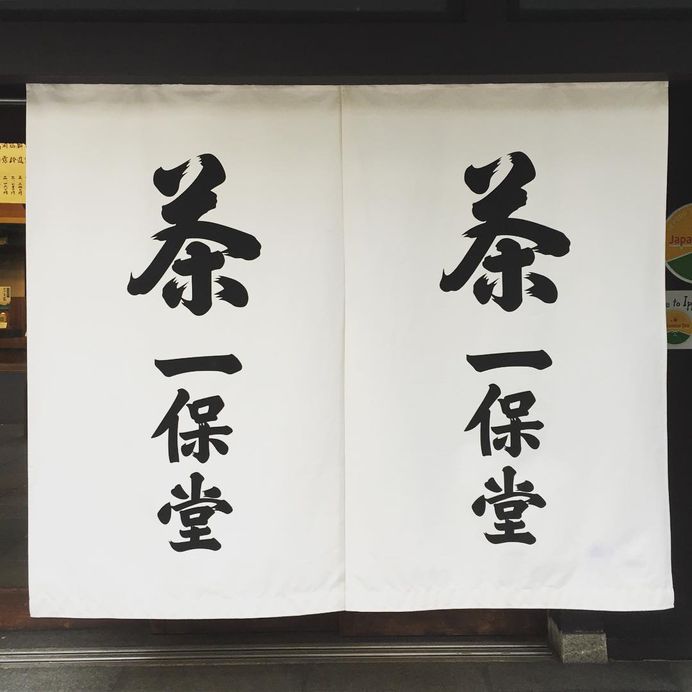 茶
一保堂
茶
一保堂
Japa
to Ipp